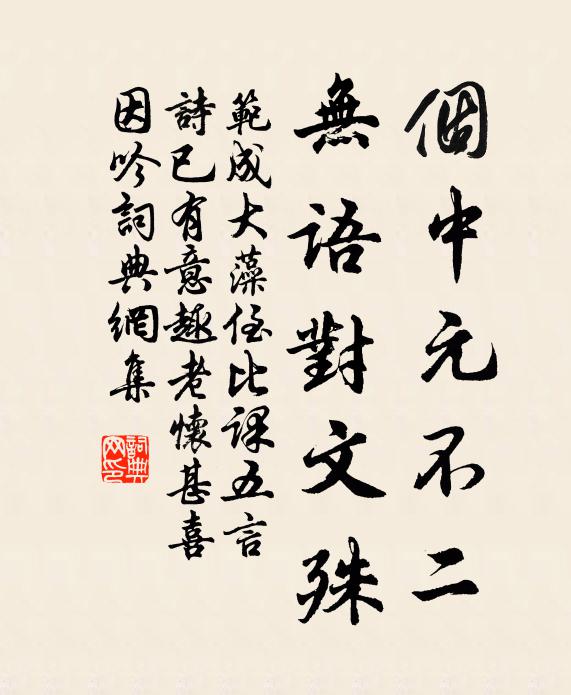 個中元不二
無語對文殊
範成大藻侄比課五言
詩已有意趣老懷甚喜
因吟詞典網集
詞典網印